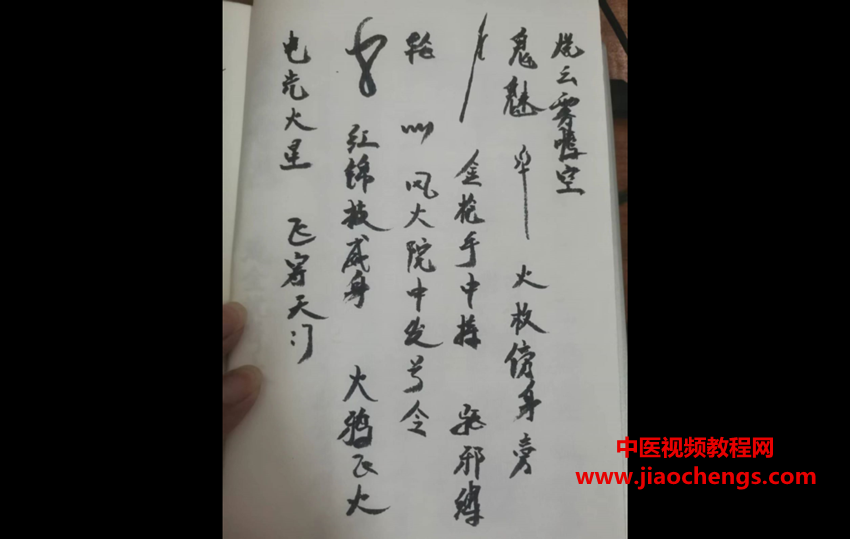 烧云雾噜空
鬼魅 火枚傍身旁
金花手中捧 驱邪缚
轮 风火院中发号令
红锦披威身 火鸦飞火
电光火星 飞宫天门
中医视频教程网
www.jiaochengs.com